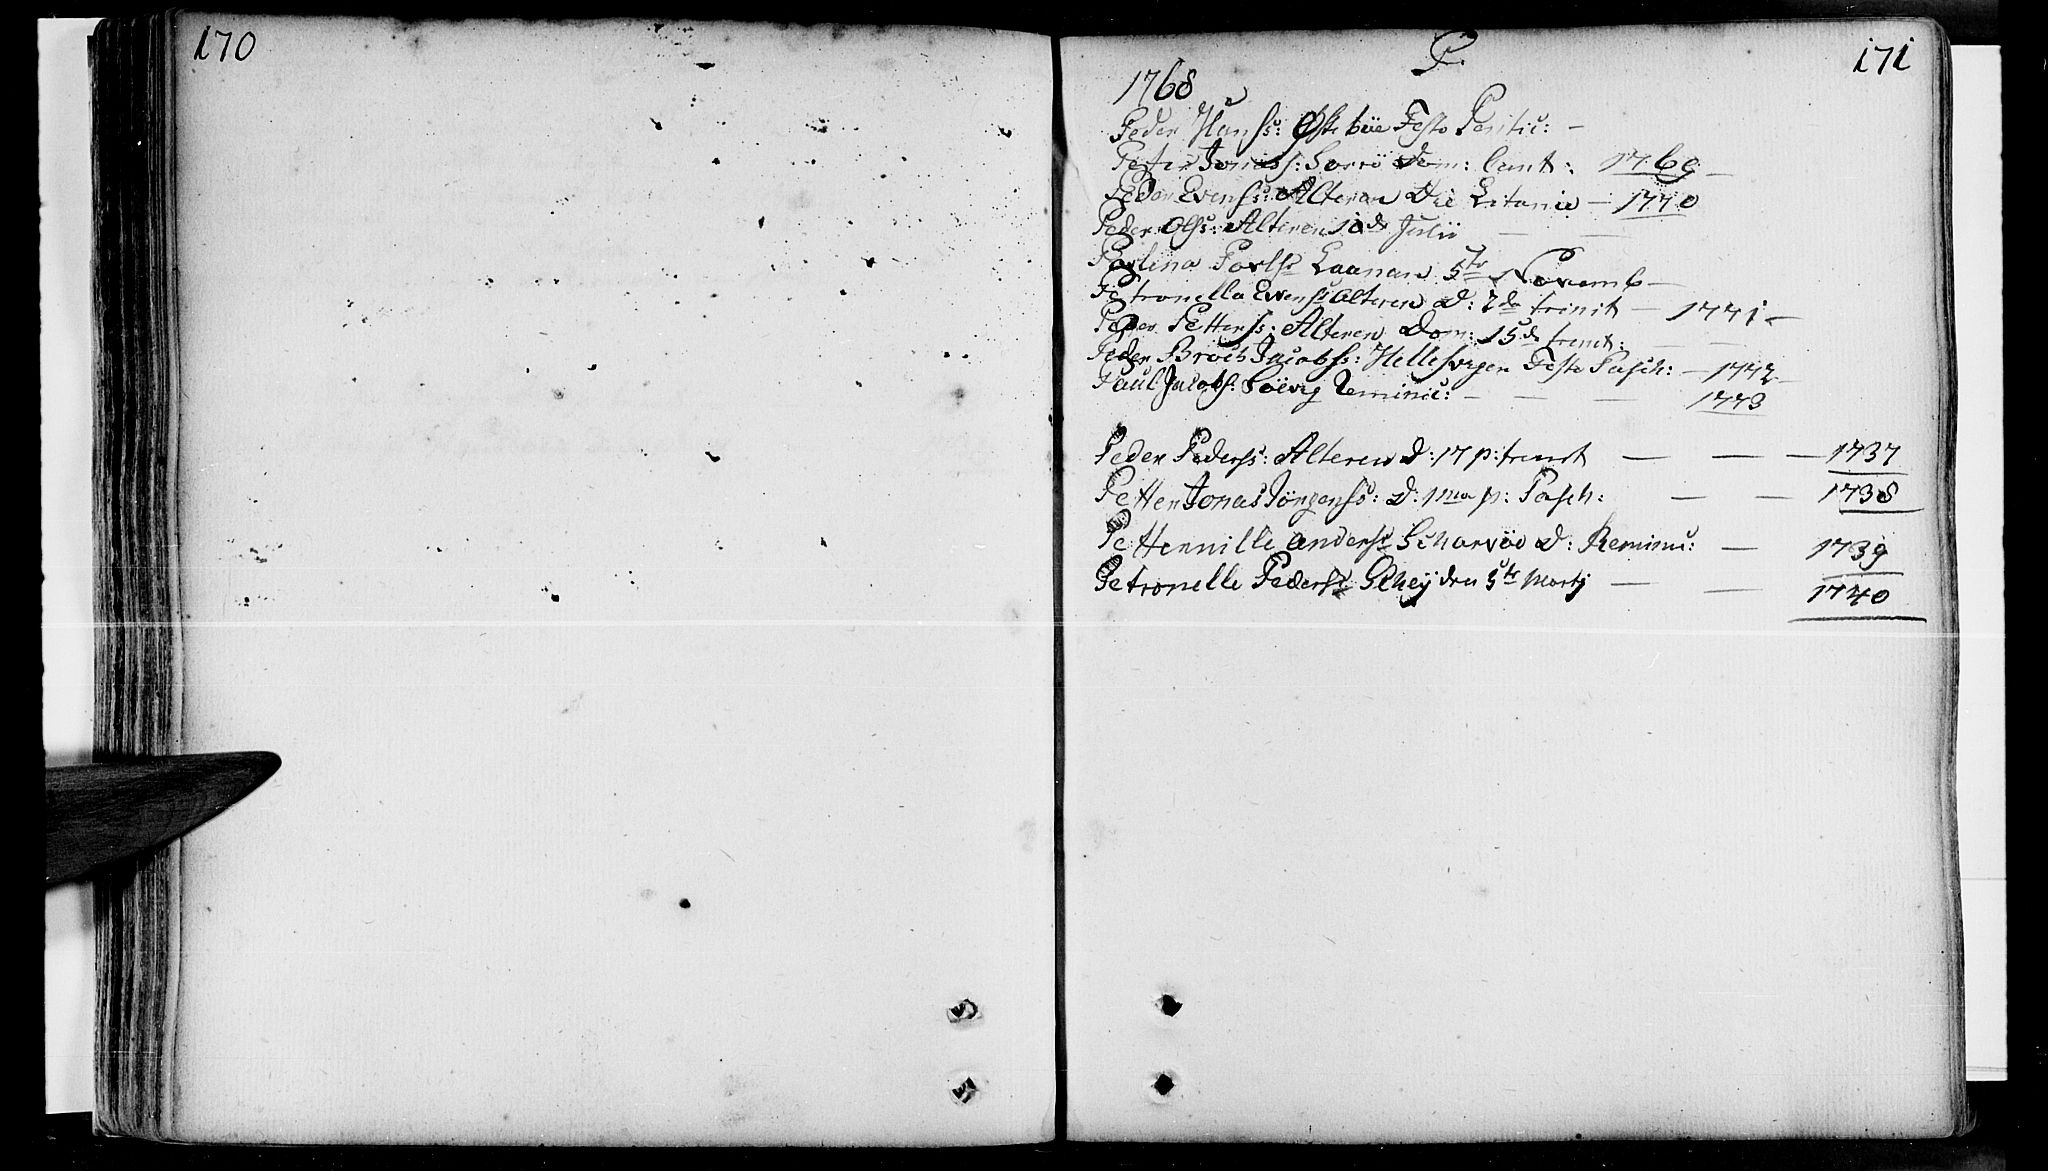 170
P.
171
1768
Peder Hanss: Østebøe Festo Pentic: —
Peter Jonass: Sorrö Dom: Cant: 1769 —
Peder Evenss: Alteren Die Litanie — 1770
Peder Olss: Alteren 10de Julii — —
Povlina Povlsd Laanan 5te Novemb —
Petronella Evensd Alteren D: 2da trinit — 1771 —
Peder Petterss: Alteren Dom: 15de trinit: — —
Peder Broch Jacobss: Hellesvigen Festo Pasch: — 1772 —
Paul Jacobs: Reminic: — — — 1773
Peder Peders: Alteren D: 17 p: trinit — — — 1737
Petter Jonas Jörgenss: D: 1ma p: Pasch: — — 1738
Petternille Andersd D: Reminic: — 1739
Petronelle Pedersd den 5te Martj — — 1740